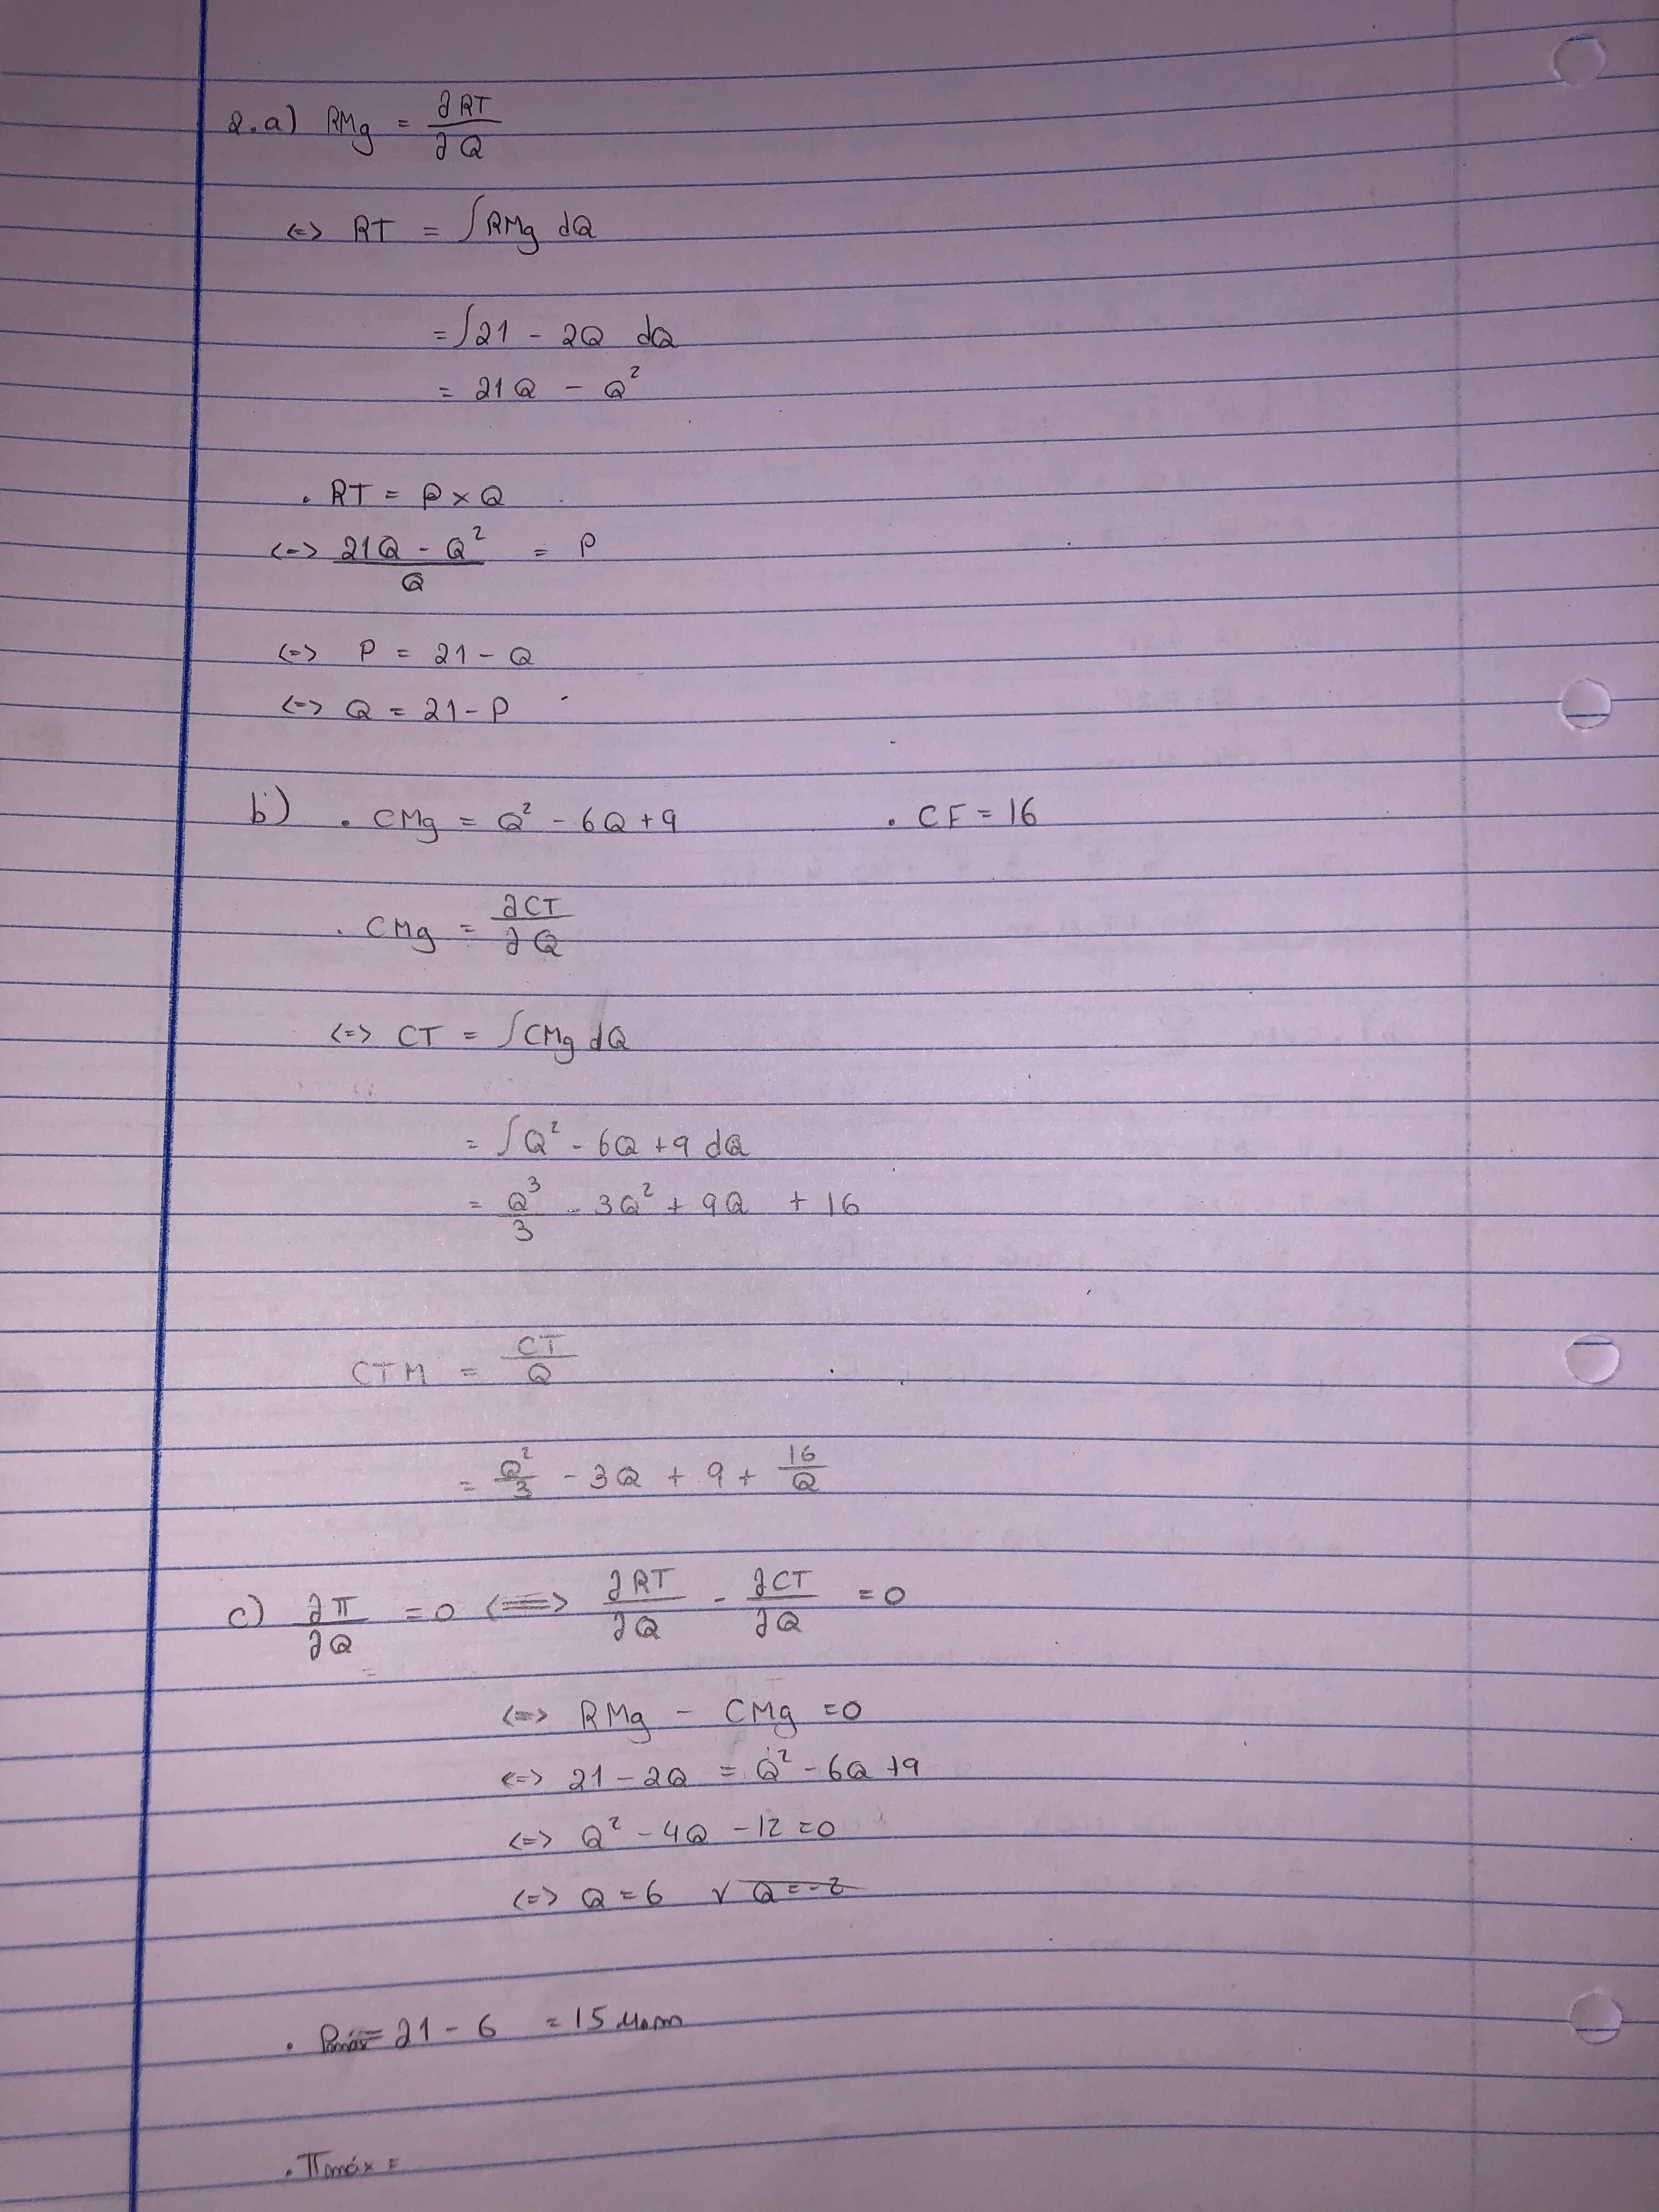 2.a) RMg = ∂RT/∂Q
<=> RT = ∫RMg dQ
= ∫21 - 2Q dQ
= 21Q - Q²
. RT = P × Q
<=> (21Q - Q²)/Q = P
<=> P = 21 - Q
<=> Q = 21 - P
b) . CMg = Q² - 6Q + 9 . CF = 16
. CMg = ∂CT/∂Q
<=> CT = ∫CMg dQ
= ∫Q² - 6Q + 9 dQ
= Q³/3 - 3Q² + 9Q + 16
CTM = CT/Q
= Q²/3 - 3Q + 9 + 16/Q
c) ∂π/∂Q = 0 <=> ∂RT/∂Q - ∂CT/∂Q = 0
<=> RMg - CMg = 0
<=> 21 - 2Q = Q² - 6Q + 9
<=> Q² - 4Q - 12 = 0
<=> Q = 6 ∨ Q = -2
. Pmáx = 21 - 6 = 15 u.m
. πmáx =